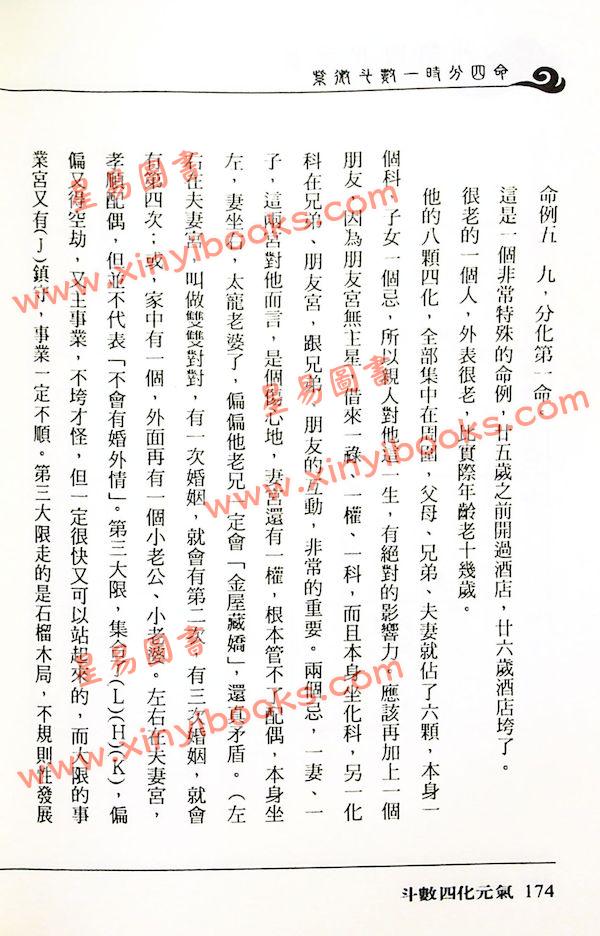 紫微斗數一時分四命
命例五　九，分化第一命。
這是一個非常特殊的命例，廿五歲之前開過酒店，廿六歲酒店垮了。
很老的一個人，外表很老，比實際年齡老十幾歲。
他的八顆四化，全部集中在周圍，父母、兄弟、夫妻就佔了六顆，本身一
個科，子女一個忌，所以親人對他這一生，有絕對的影響力。應該再加上一個
朋友，因為朋友宮無主星，借來一祿、一權、一科，而且本身坐化科，另一化
科在兄弟、朋友宮，跟兄弟、朋友的互動，非常的重要。兩個忌，一妻、一
子，這兩宮對他而言，是個傷心地，妻宮還有一權，根本管不了配偶，本身坐
左，妻坐右，太寵老婆了，偏偏他老兄一定會「金屋藏嬌」，還真矛盾。（左
右在夫妻宮，叫做雙雙對對，有一次婚姻，就會有第二次，有三次婚姻，就會
有第四次；或，家中有一個，外面再有一個小老公、小老婆。左右在夫妻宮，
孝順配偶，但並不代表「不會有婚外情」。第三大限，集合了(L)(H)(K)，偏
偏又得空劫，又主事業，不垮才怪，但一定很快又可以站起來的，而大限的事
業宮又有(J)鎮守，事業一定不順。第三大限走的是石榴木局，不規則性發展
斗數四化元氣 174
星易圖書
www.xinyibooks.com
星易圖書
www.xinyibooks.com
星易圖書
www.xinyibooks.com